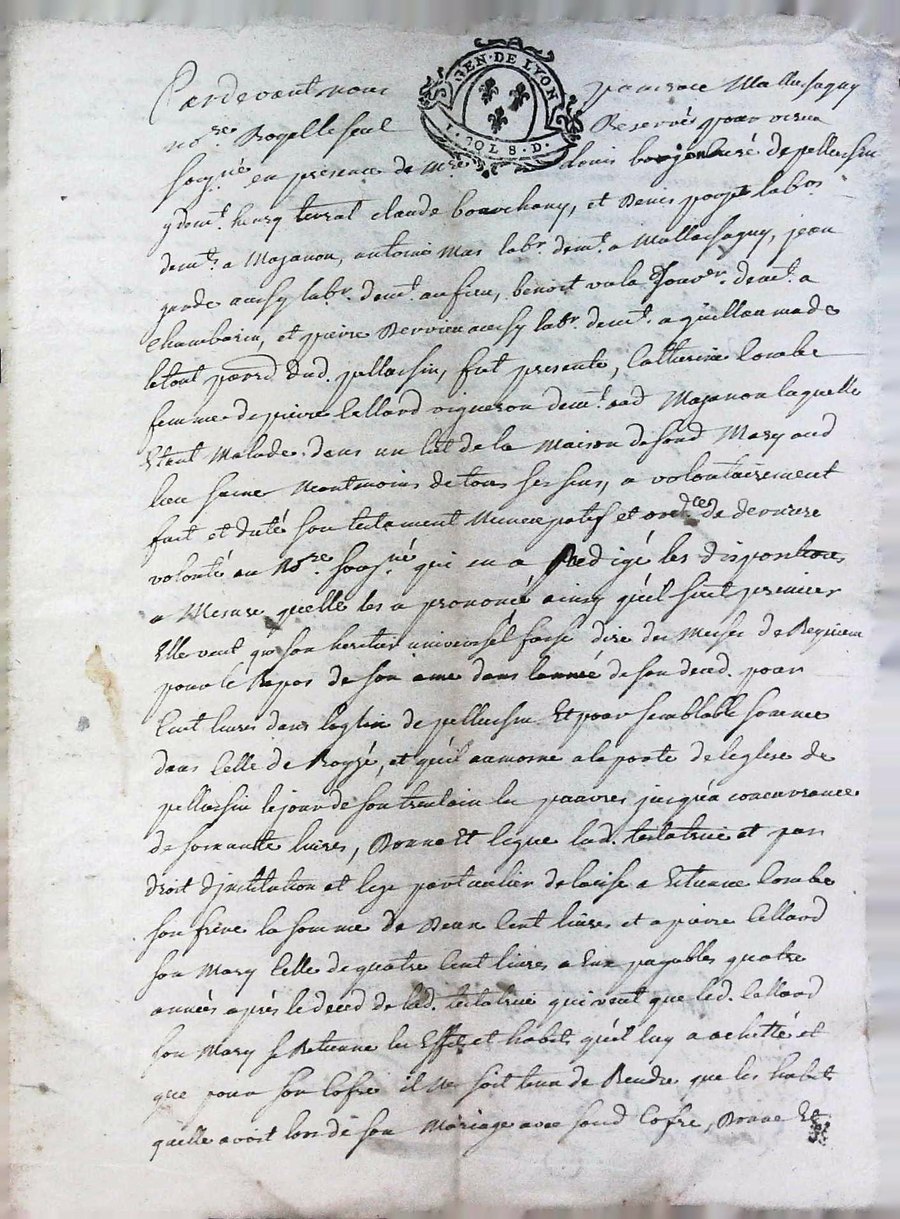 GEN · DE LYON
SOLS · D.
Pardevant nous
no.re Royal seul Reservés pour vieux
sousg.né en présence de M.re Louis curé de pellussin
y dem.t henry claude bonchany, et Denis labos
dem.ts a Mazanon, antoine Mas lab.r dem.t a Mallassaguy, jean
garde aussy lab.r dem.t au fieu, benoit viala dem.t a
Chambarin, et pierre Dervieu aussy lab.r dem.t a guillaumade
le tout par.sse dud. pellussin, fut presente, Catherine Combe
femme de pierre Callard vigneron dem.t aud Mazanon laquelle
Etant Malade dans un lit de la Maison de sond Mary aud
lieu saine Neantmoins de tous ses sens, a volontairement
fait et dicté son testament Nuncupatif et ord.ce de derniere
volonté au No.re sousg.né qui en a Redigé les dispositions
a Mesure quelle les a prononcé ainsy quil suit premier
Elle veut que son heritier universel fasse dire des Messes de Requiem
pour le Repos de son ame dans lannée de son deced. pour
Cent livres dans leglise de pellussin Et pour semblable somme
dans Celle de Roysé, et quil aumone a la porte de leglise de
pellussin le jour de son trentain les pauvres jusqua concurrance
de soixantte livres, Donne Et legue lad. testatrice et par
droit dinstitution et legs particulier delaisse a Etienne Combe
son frère la somme de Deux Cent livres et a pierre Callard
son Mary Celle de quatre Cent livres a Eux payables quatre
années après le deced de lad. testatrice qui veut que led. Callard
son Mary se Retienne les Effet et habits qu'il luy a achetté et
que pour son Cofre il ne soit tenu de Rendre que les habits
quelle avoit lors de son Mariage avec sond Cofre, Donne Et